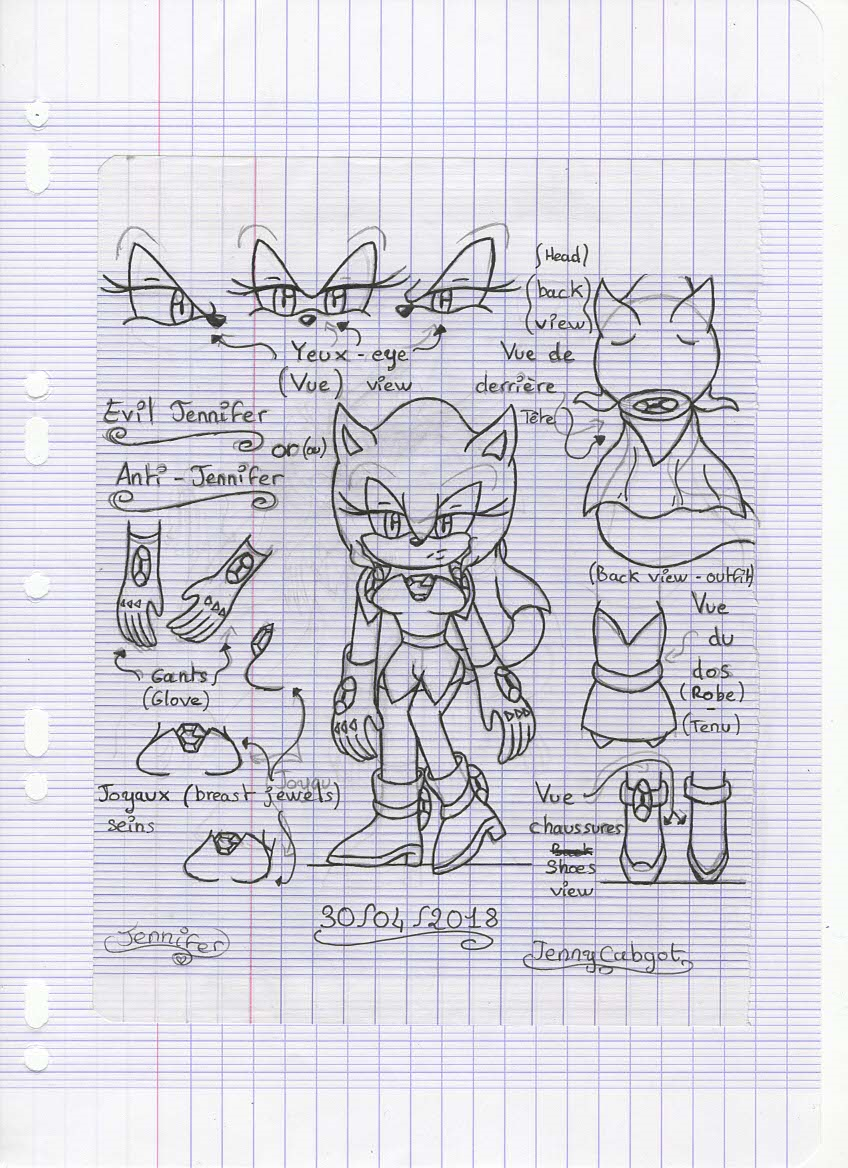 (Head)
(back
view)
Yeux - eye
(Vue) view
Vue de
derrière
Tête
Evil Jennifer
or (ou)
Anti - Jennifer
(Back view - outfit)
Vue
du
dos
(Robe)
-
(Tenu)
Gants
(Glove)
Joyau
Joyaux (breast jewels)
seins
Vue
chaussures
Back
Shoes
view
30/04/2018
Jennifer
JennyCabgot